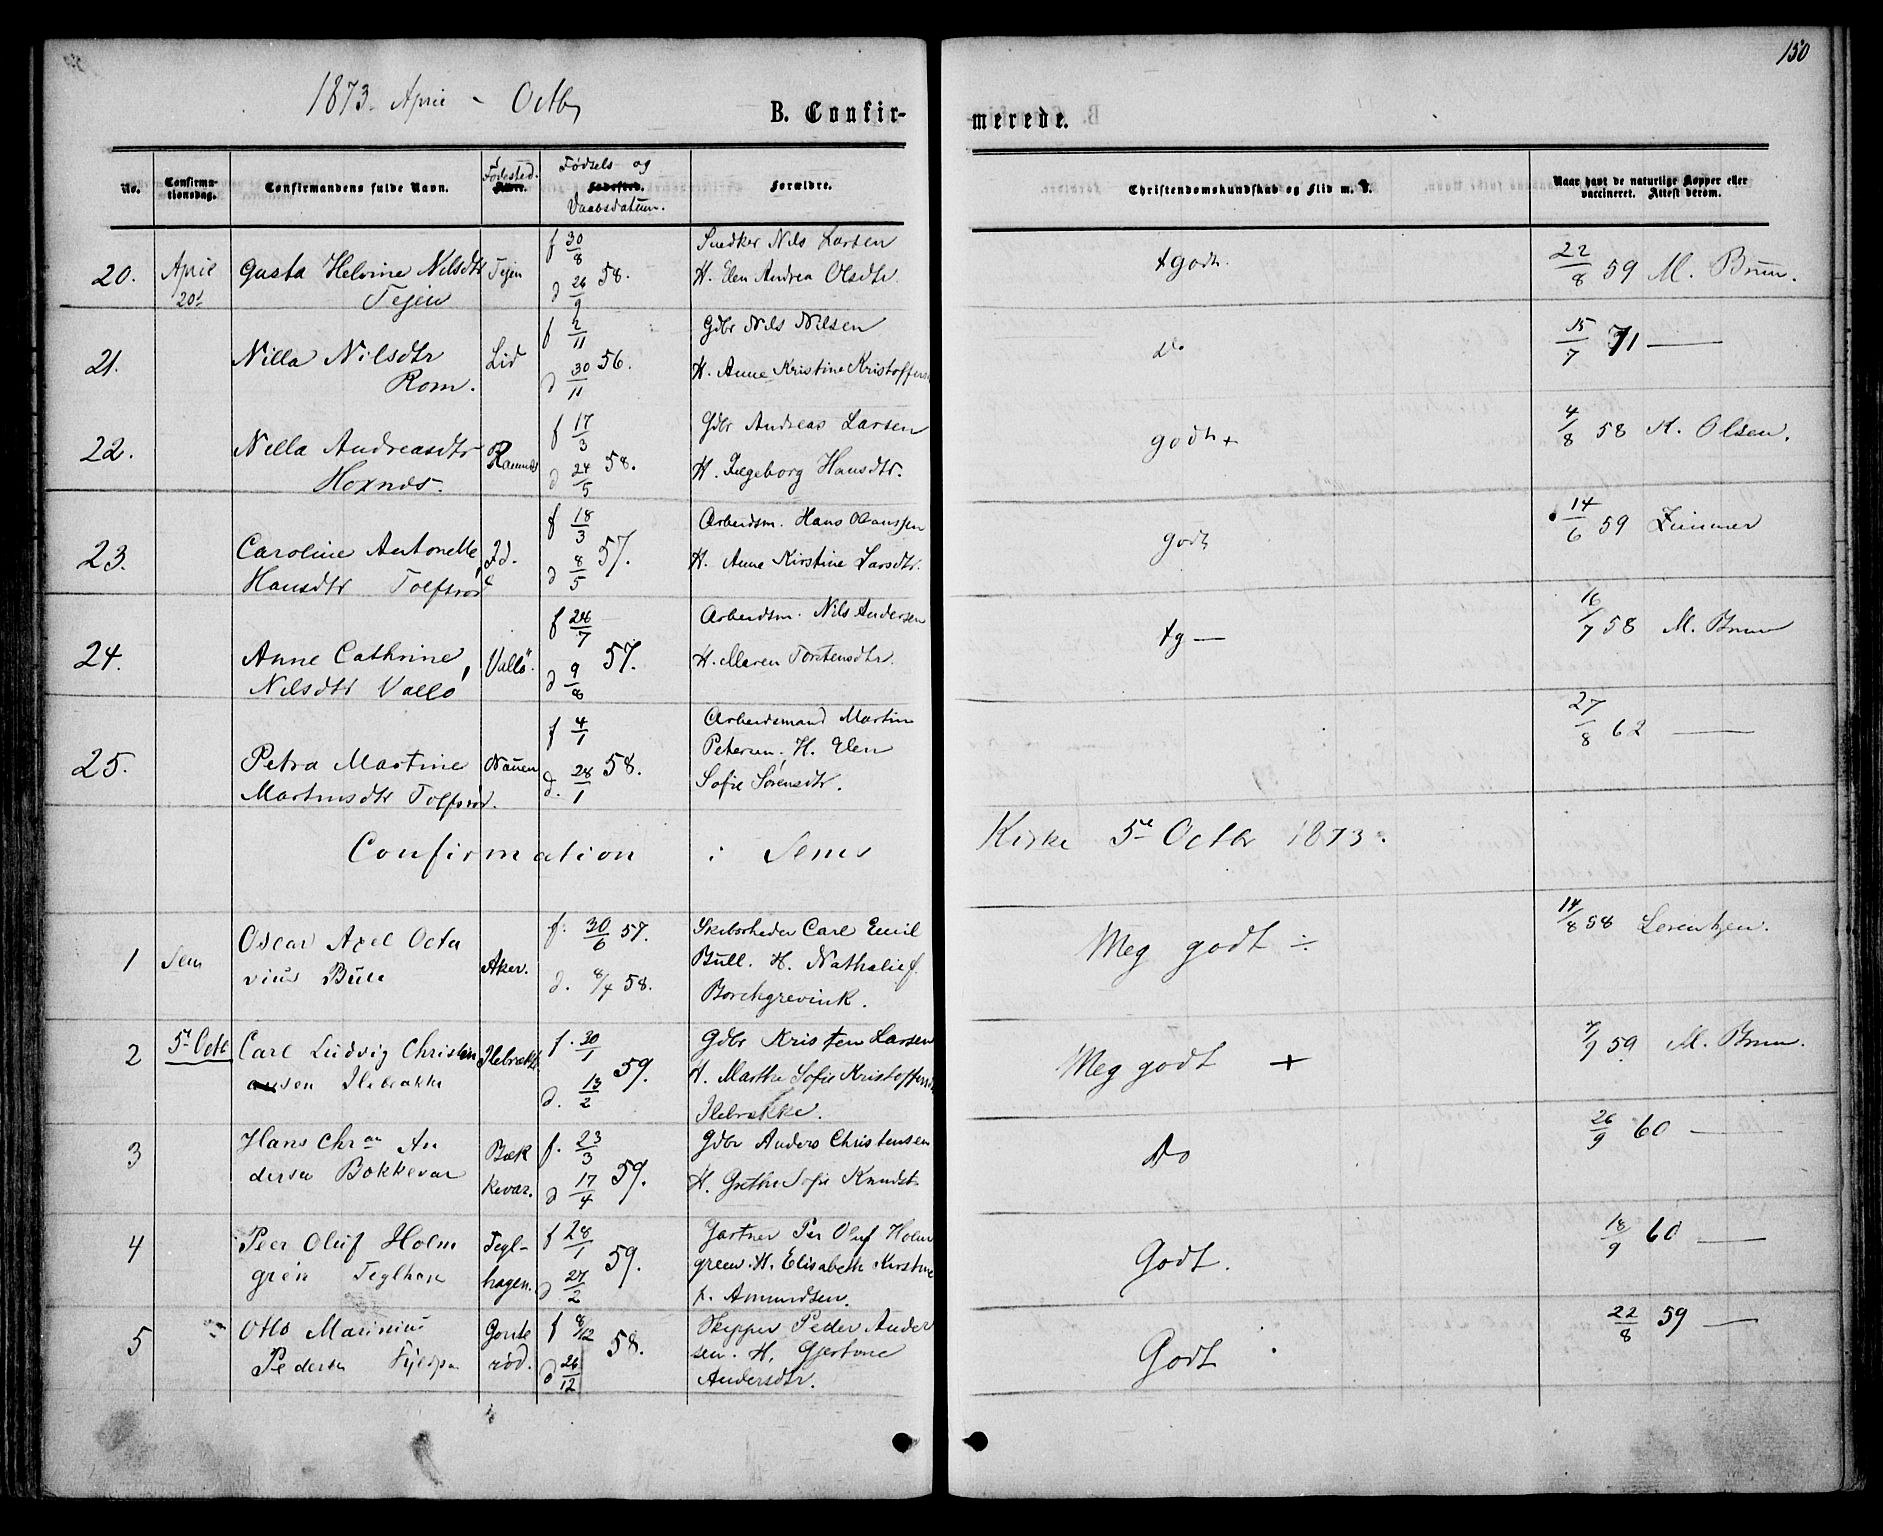 150
1873. April - Octbr
B. Confir-
merede.
No.
Confirma-
tionsdag.
Confirmandens fulde Navn.
Fødested.
Alder.
Fødsels og
Fødested.
Daabsdatum.
Forældre.
Christendomskundskab og Flid m. V.
Naar havt de naturlige Kopper eller
vaccineret. Attest derom.
20. April 20d Gusta Helvine Nilsdtr Tejen f 30/8 Snedker Nils Larsen tgodt. 22/8 59 M. Bruun.
Tejen d 26/9 58. H. Elen Andrea Olsdtr.
21. Nilla Nilsdtr Lid f 2/11 Gdbr Nils Nilsen Do 15/7 71 —
Rom. d 30/11 56. H. Anne Kristine Kristoffersd
22. Nella Andreasdtr Ramnes f 17/3 Gdbr Andreas Larsen godt + 4/8 58 K. Olsen.
Hoxnes. d 24/5 58. H. Ingeborg Hansdtr.
23. Caroline Antonette f 18/3 Arbeidsm. Hans Olaussen godt 14/6 59 Zimmer
Hansdtr Tolfsrød d 8/5 57. H. Anne Kirstine Larsdtr.
24. Anne Cathrine Vallø. f 28/7 Arbeidsm. Nils Andersen tg — 16/7 58 M. Bruun
Nilsdtr Vallø d 9/8 57. H. Maren Torstensdtr.
25. Petra Martine Nauen f 4/1 Arbeidsmand Martin 27/8 62 —
Martinsdtr Tolfsrød. d. 28/1 58. Petersen, H. Elen
Sofie Sørensdtr.
Confirmation i Sems Kirke 5te Octbr 1873.
1 Sem Oscar Axel Octa Aker. f: 30/6 57. Skibsrheder Carl Emil Meg godt ÷ 14/8 58 Lorentzen.
vius Bull d. 8/4 58. Bull. H. Nathalie f.
Borchgrevink.
2 5t Octb Carl Ludvig Christian Ilebrække f. 30/1 Gdbr Kristen Larsen Meg godt + 7/9 59 M. Bruun.
sen Ilebrække d. 13/2 59. H. Marthe Sofie Kristoffersd
Ilebrække.
3 Hans Chran An Bæk f. 23/3 Gdbr Anders Christensen Do 26/9 60 —
dersen Bøkkevar kevar. d 17/4 59. H. Grethe Sofie Knudst
4 Peer Oluf Holm Tegl- f 28/1 Gartner Per Oluf Holm Godt. 18/9 60 —
gren Teglhagen hagen. d 27/2 59. green. H. Elisabeth Kirstine
f. Amundsen.
5 Otto Marinius Gonte f 8/12 Skipper Peder Ander Godt 22/8 59 —
Pedersen rød. d 26/12 58. sen. H. Gjertine
Andersdtr.